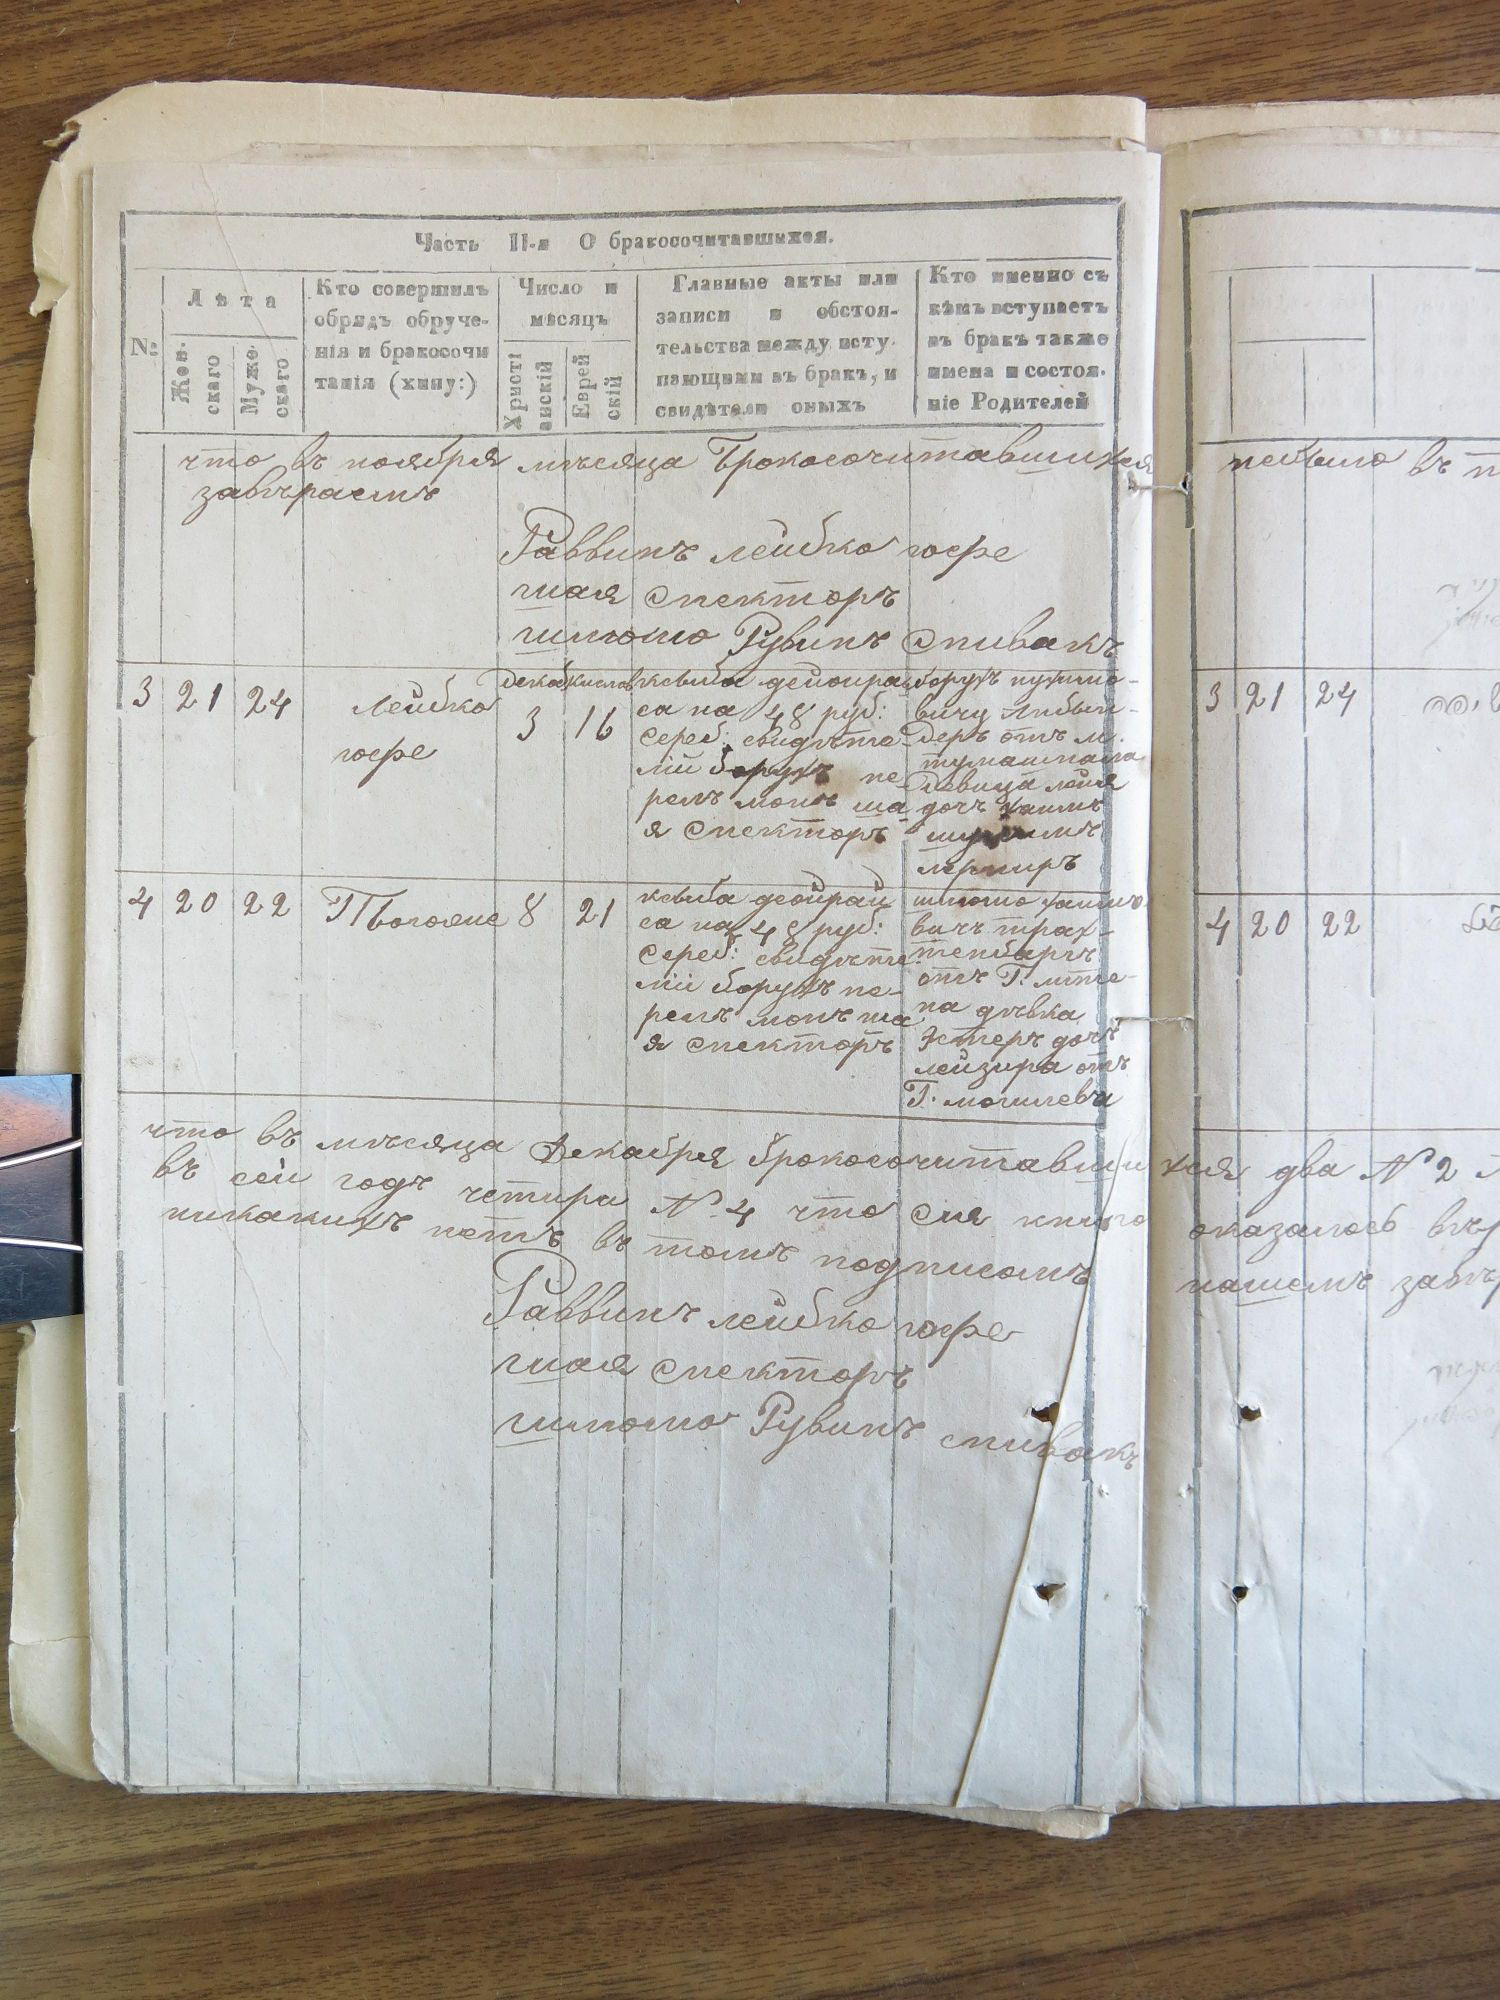 Часть II-я О бракосочитавшихся.
№:
Лѣта
Жен-
скаго
Муже
скаго
Кто совершилъ
обрядъ обруче-
нія и бракосочи
танія (хипу:)
Число и
мѣсяцъ
Христі
анскій
Еврей
скій
Главные акты или
записи и обстоя-
тельства между всту-
пающими въ бракъ, и
свидѣтели оныхъ
Кто именно съ
кѣмъ вступаетъ
въ бракъ также
имена и состоя-
ніе Родителей
что въ ноября мѣсяца Брокосочитавшихся
завѣраемъ
Раввинъ лейбко юфе
шая спекторъ
шлюмо Рувинъ Спивакъ
3 21 24
Лейбко
юфе
декаб кислов
3 16
ксиба дейоирай
са на 48 руб:
сереб: свидѣте-
лій борухъ пе-
релъ моnъ ша
я спекторъ
борухъ
деръ отъ м.
девица лейя
дочъ хаимъ
4 20 22
8 21
ксиба деойрай
са на 48 руб:
сереб: свидѣте
лій борухъ пе-
релъ моnъ ша
я спекторъ
шлюмо хаимо
вичъ трах-
тенбаргъ
отъ Г. лите-
на дѣвка
Эстеръ дочъ
лейзира отъ
Г. могилева
что въ мѣсяца Декабря брокосочитавши хся два № 2
въ сей годъ четири № 4 что сия книго оказалось
никакихъ нетъ въ томъ подписомъ нашемъ
Раввинъ лейбко юфе
шая спекторъ
шлюмо Рувинъ спивакъ
небыло въ
3 21 24
4 20 22